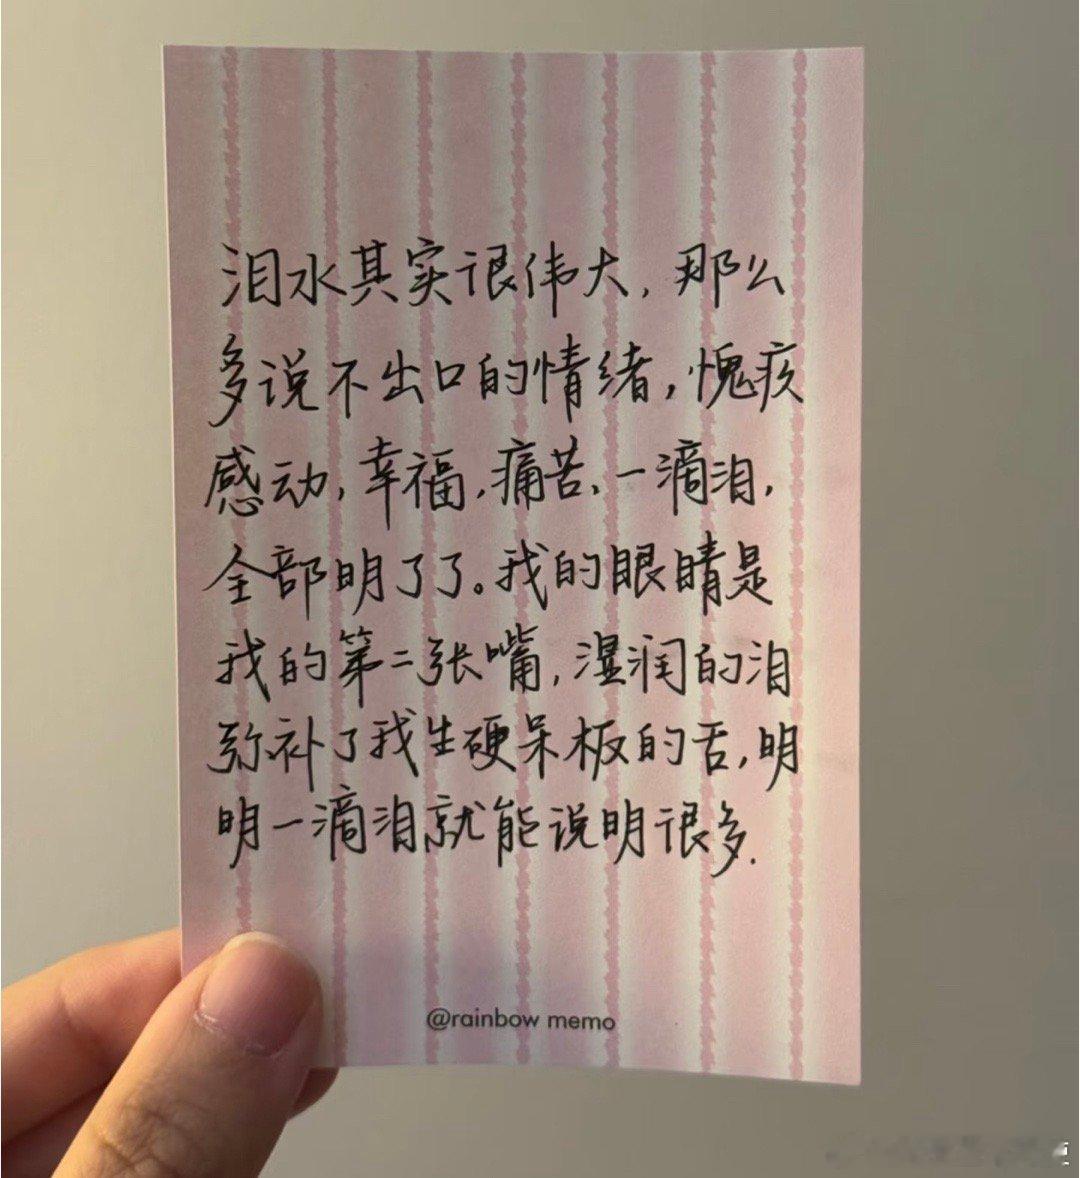 泪水其实很伟大，那么
多说不出口的情绪，愧疚
感动，幸福，痛苦，一滴泪，
全部明了了。我的眼睛是
我的第二张嘴，湿润的泪
弥补了我生硬呆板的舌，明
明一滴泪就能说明很多.
@rainbow memo